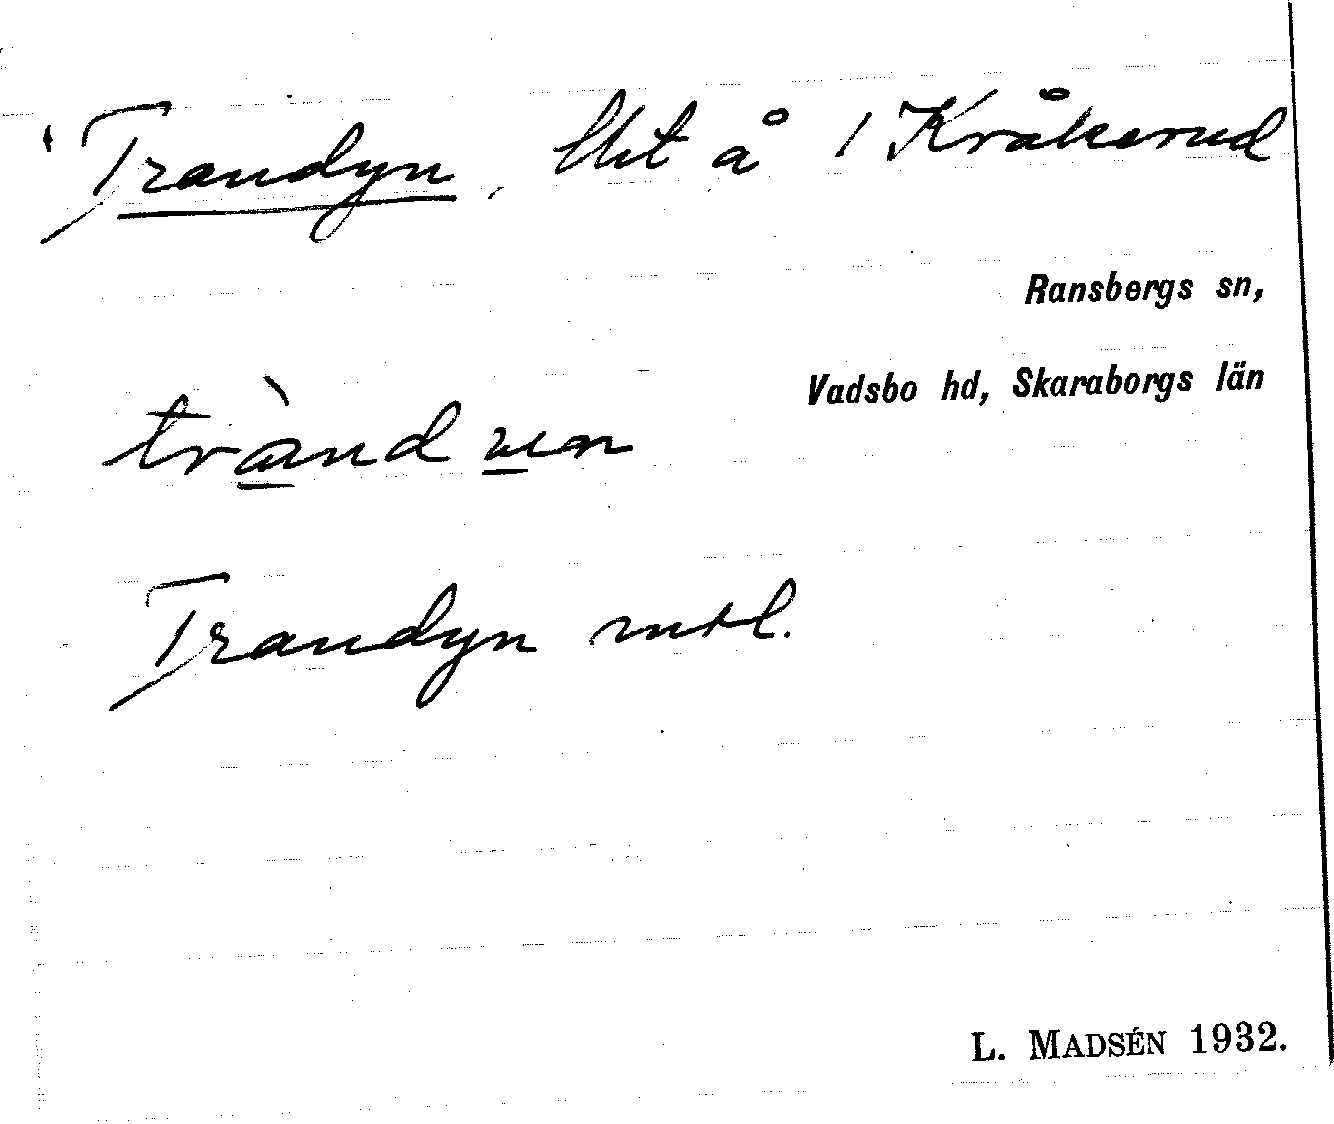 Trandyn, lht å 1 Kråkerud
Ransbergs sn,
Vadsbo hd, Skaraborgs län
tràndyen
Trandyn mtl.
L. MADSÉN 1932.